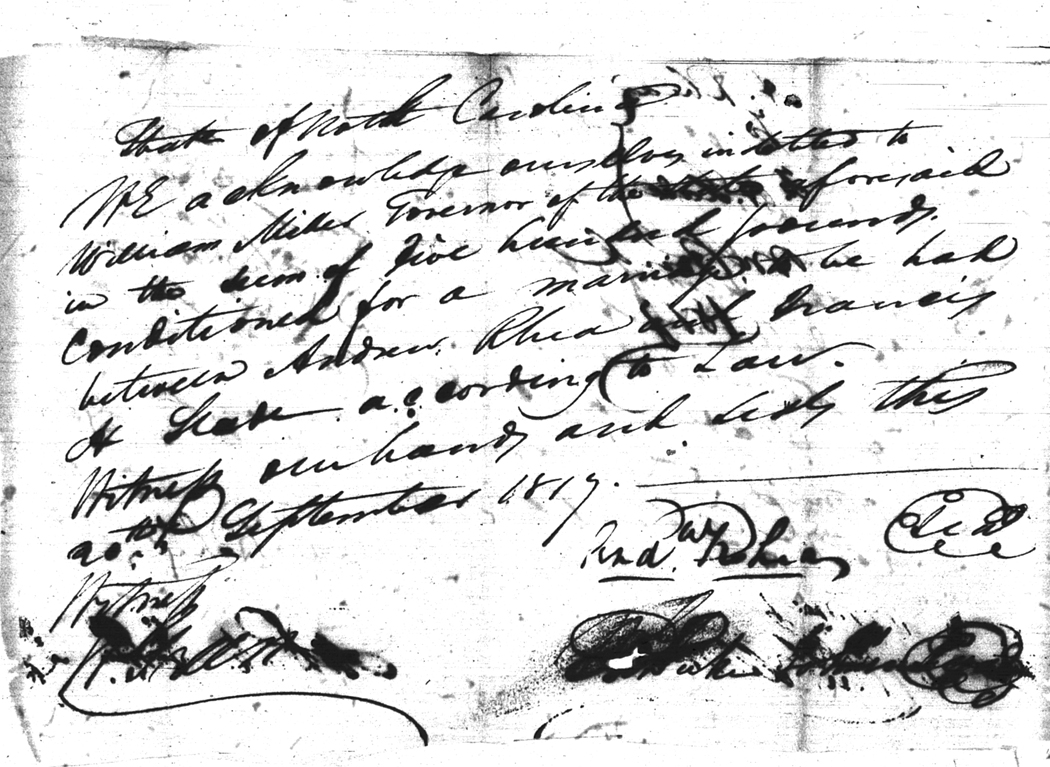 State of North Carolina
WE acknowledge ourselves indetted to
William Miller Governor of the State aforesaid
in the sum of five hundred pounds
Conditioned for a marriage to be had
between Andrew Rhea and Francis
H Slade according to Law.
Witness our hands and seals this
20th September 1817.
And.w Rhea Seal
Witness